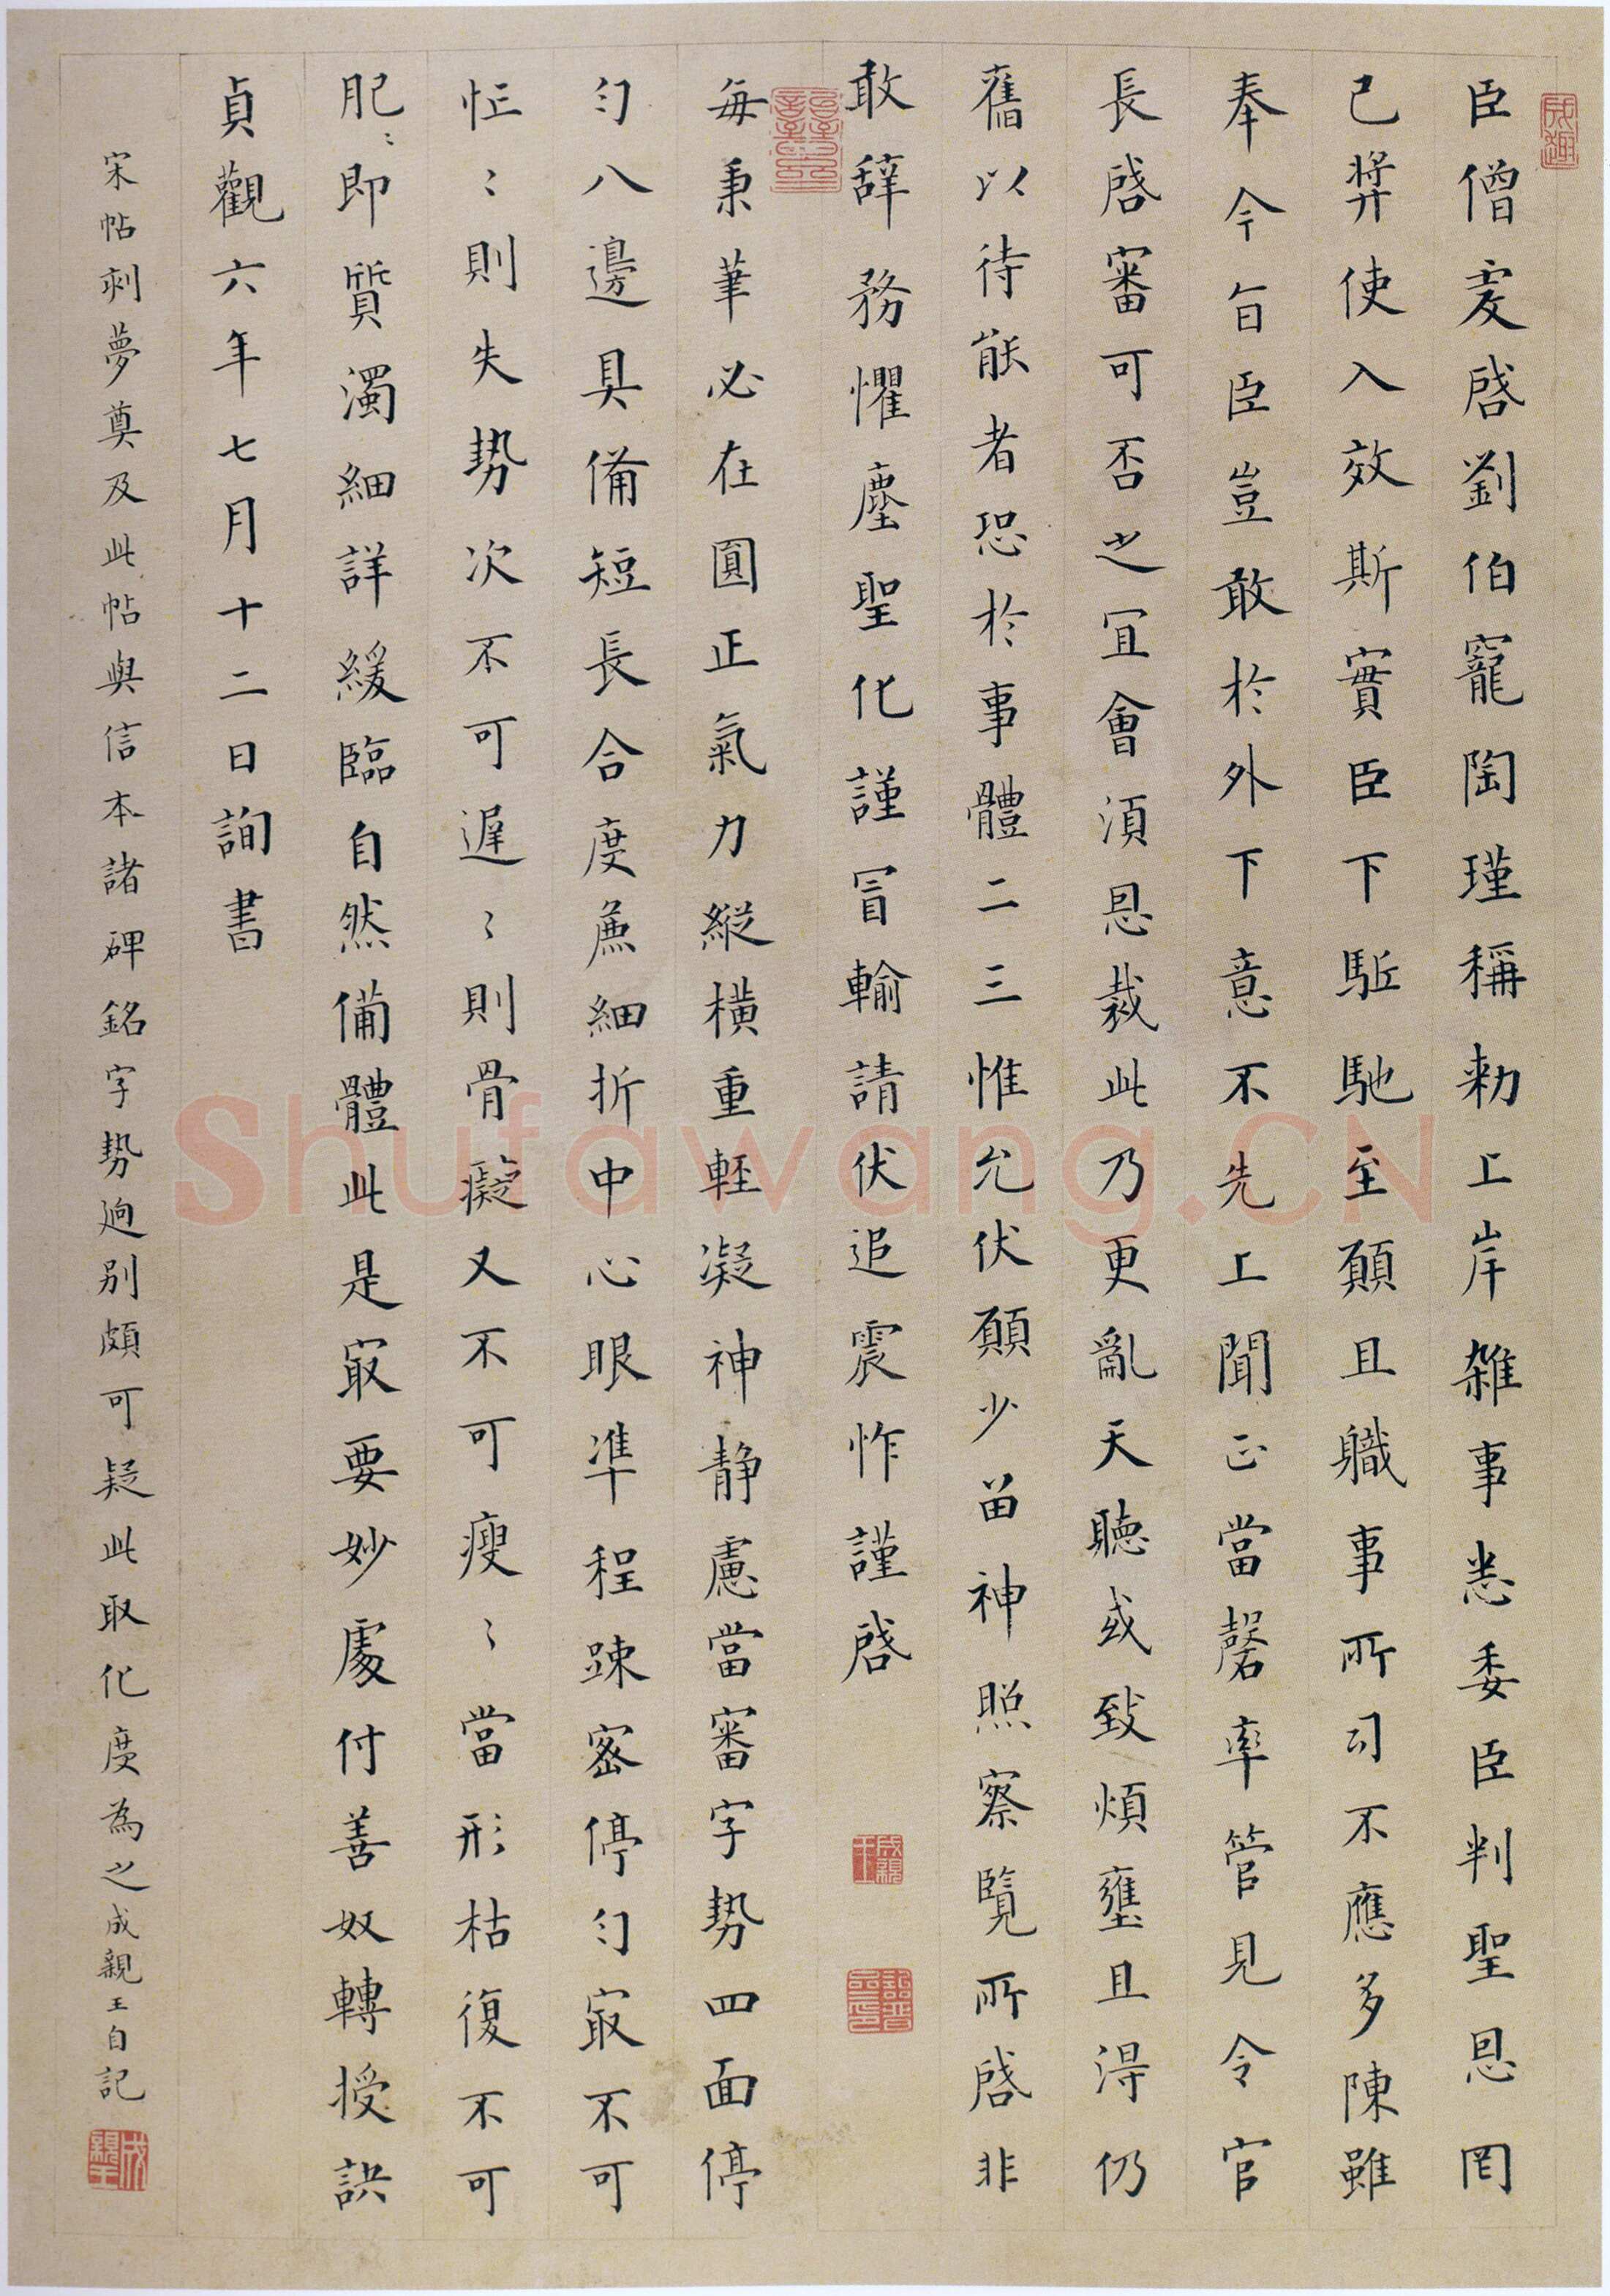 臣僧虔啓劉伯寵陶瑾稱勑上岸雜事悉委臣判聖恩罔
已弉使入效斯實臣下駈馳至願且職事所司不應多陳雖
奉今旨臣豈敢於外下意不先上聞正當罄率管見令官
長啓審可否之冝會湏恩裁此乃更亂天聽或致煩壅且淂仍
舊以待能者恐於事體二三惟允伏願少留神照察覽所啓非
敢辞務懼塵聖化謹冒輸請伏追震怍謹啓
每秉筆必在圓正氣力縱橫重輕凝神静慮當審字勢四面停
勻八邊具備短長合度麁細折中心眼準程踈密停勻㝡不可
忙〻則失勢次不可遲〻則骨癡又不可瘦〻當形枯復不可
肥〻即質濁細詳緩臨自然備體此是㝡要妙處付善奴轉授訣
貞觀六年七月十二日詢書
宋帖刺夢奠及此帖與信本諸碑銘字勢逈別頗可疑此取化度為之成親王自記
成親王
Shufawang.CN